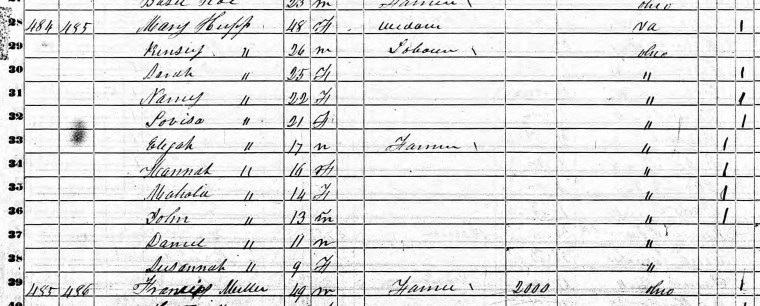 23 m Farmer Ohio
28 484 485 Mary Hupp 48 F Va 1
29 Kinsey " 26 m Ohio
30 Sarah " 25 F " 1
31 Nancy " 22 F " 1
32 Lovisa " 21 F " 1
33 Elijah " 17 m Farmer " 1
34 Hannah " 16 F " 1
35 Mahala " 14 F " 1
36 John " 13 m " 1
37 Daniel " 11 m "
38 Susannah " 9 F "
39 485 486 Francis Muller 49 m Farmer 2000 Ohio 1